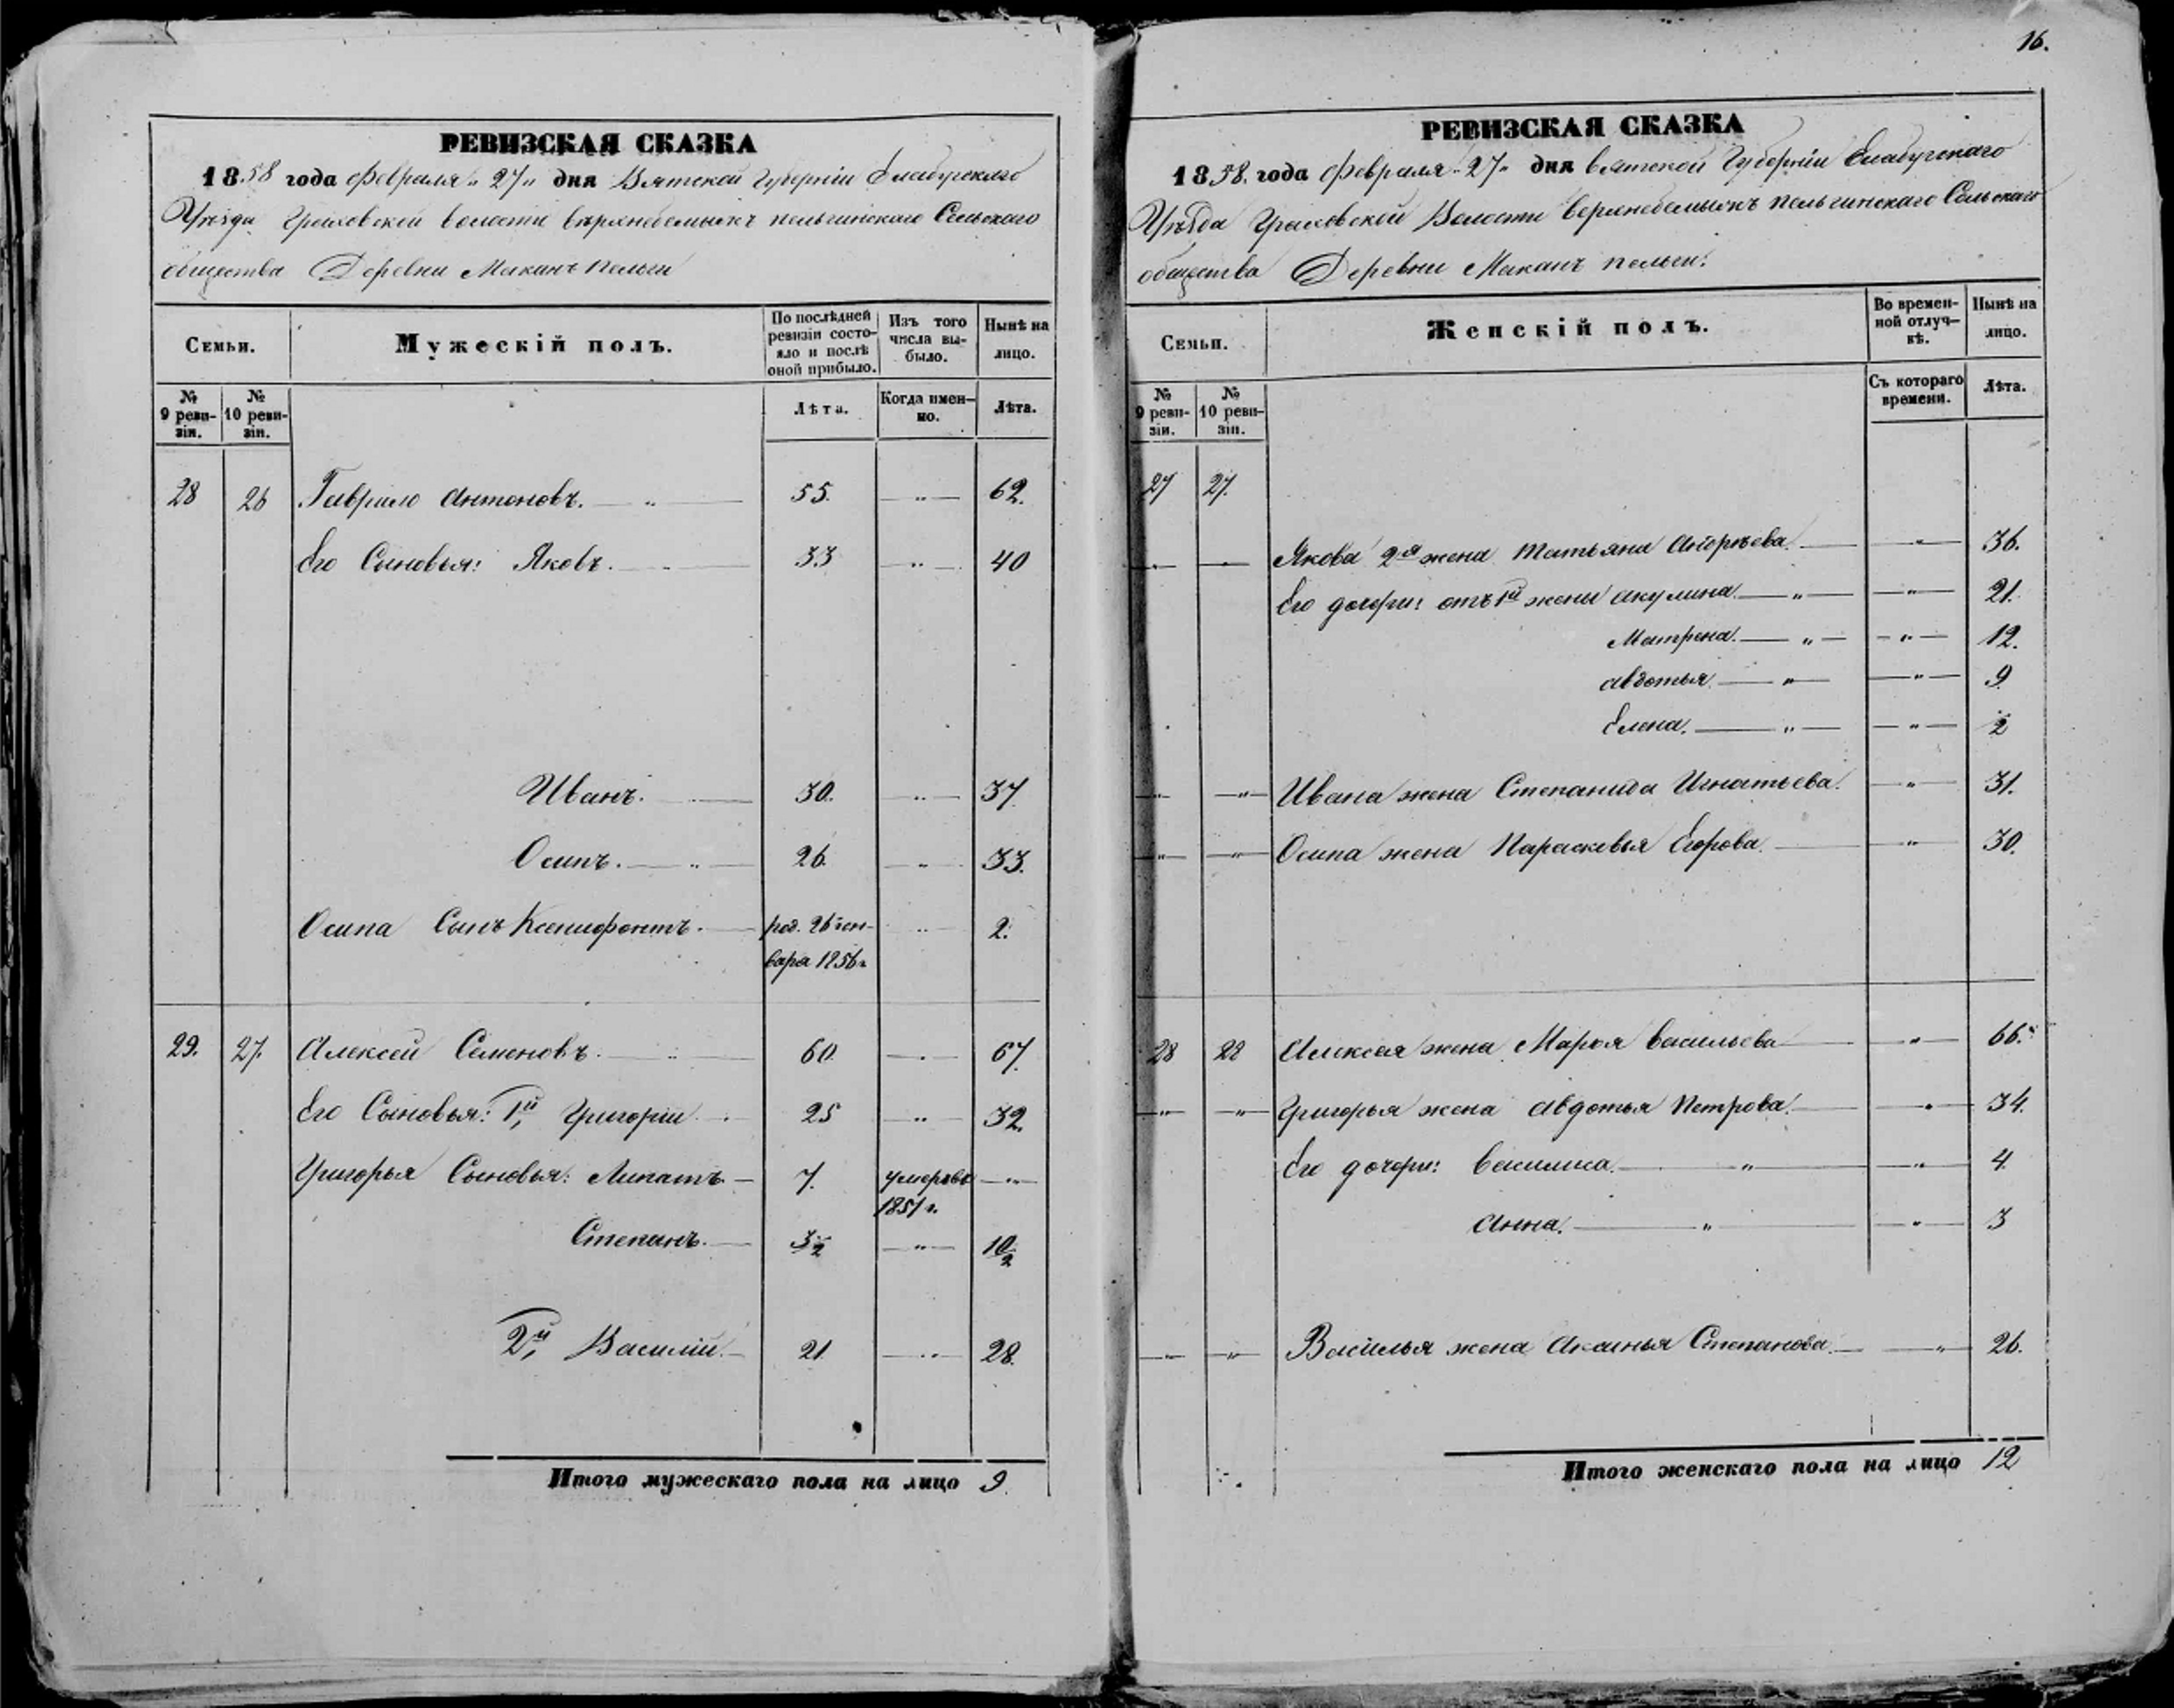 16.
РЕВИЗСКАЯ СКАЗКА
1858 года Февраля „27„ дня Вятской Губерніи Елабугскаго
Уѣзда Граховской волости верхнебемыжъ пельгинскаго Сельскаго
общества Деревни Маканъ пельги
Семьи.
Мужескій полъ.
По послѣдней ревизіи состояло и послѣ оной прибыло.
Изъ того числа выбыло.
Нынѣ на лицо.
№ 9 ревизіи.
№ 10 ревизіи.
Лѣта.
Когда именно.
Лѣта.
28 26 Гаврило Антоновъ. — „ — 55. — „ — 62.
Его Сыновья: Яковъ. — 33 — „ — 40
Иванъ. — 30. — „ — 37.
Осипъ. — „ — 26. — „ — 33.
Осипа Сынъ Ксенофонтъ. — род. 26 ген- „ 2.
варя 1856 г.
29. 27. Алексей Семеновъ. — „ — 60. — 67.
Его Сыновья: 1й, Григорій — 25 — „ — 32.
Григорья Сыновья: Липатъ — 7. умеръ въ — „ —
1851 г.
Степанъ. — 3/2 — „ — 10/2
2й, Василій. — 21 — „ — 28.
Итого мужескаго пола на лицо 9.
РЕВИЗСКАЯ СКАЗКА
1858. года Февраля „27„ дня вятской Губерніи Елабугскаго
Уѣзда Граховской Волости верхнебемыжъ пельгинскаго Сельскаго
общества Деревни Маканъ пельги.
Семьи.
Женскій полъ.
Во временной отлучкѣ.
Нынѣ на лицо.
№ 9 ревизіи.
№ 10 ревизіи.
Съ котораго времени.
Лѣта.
27 27.
— „ — — „ — Якова 2я жена Татьяна Андреева. — „ — 36.
Его дочери: отъ 1й жены акулина — „ — — „ — 21.
Матрена. — „ — — „ — 12.
авдотья. — „ — — „ — 9.
Елена. — „ — — „ — 2
— „ — — „ — Ивана жена Степанида Игнатьева. — „ — 31.
— „ — — „ — Осипа жена Парасковья Егорова. — „ — 30.
28 28 Алексея жена Марья Васильева — „ — 66.
— „ — — „ — Григорья жена авдотья Петрова. — „ — 34.
Его дочери: Василиса. — „ — — „ — 4.
Анна. — „ — — „ — 3
— „ — — „ — Василья жена Аксинья Степанова. — „ — 26.
Итого женскаго пола на лицо 12